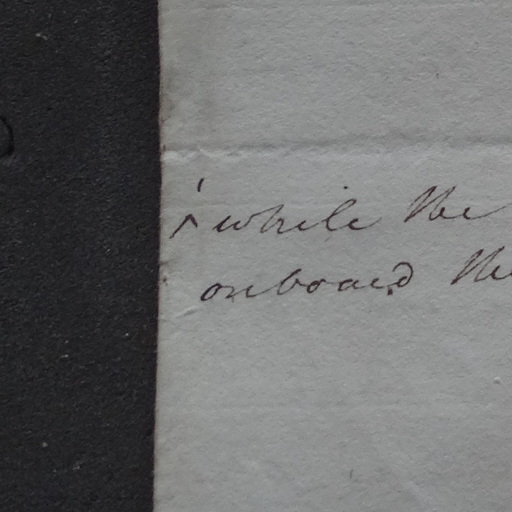 while the
onboard the